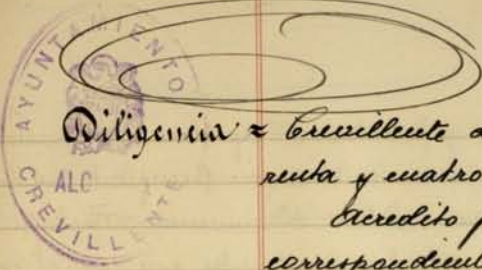 AYUNTAMIENTO
CREVILLENTE
ALC
Diligencia = Crevillente a
renta y cuatro
Acredito p
correspondient